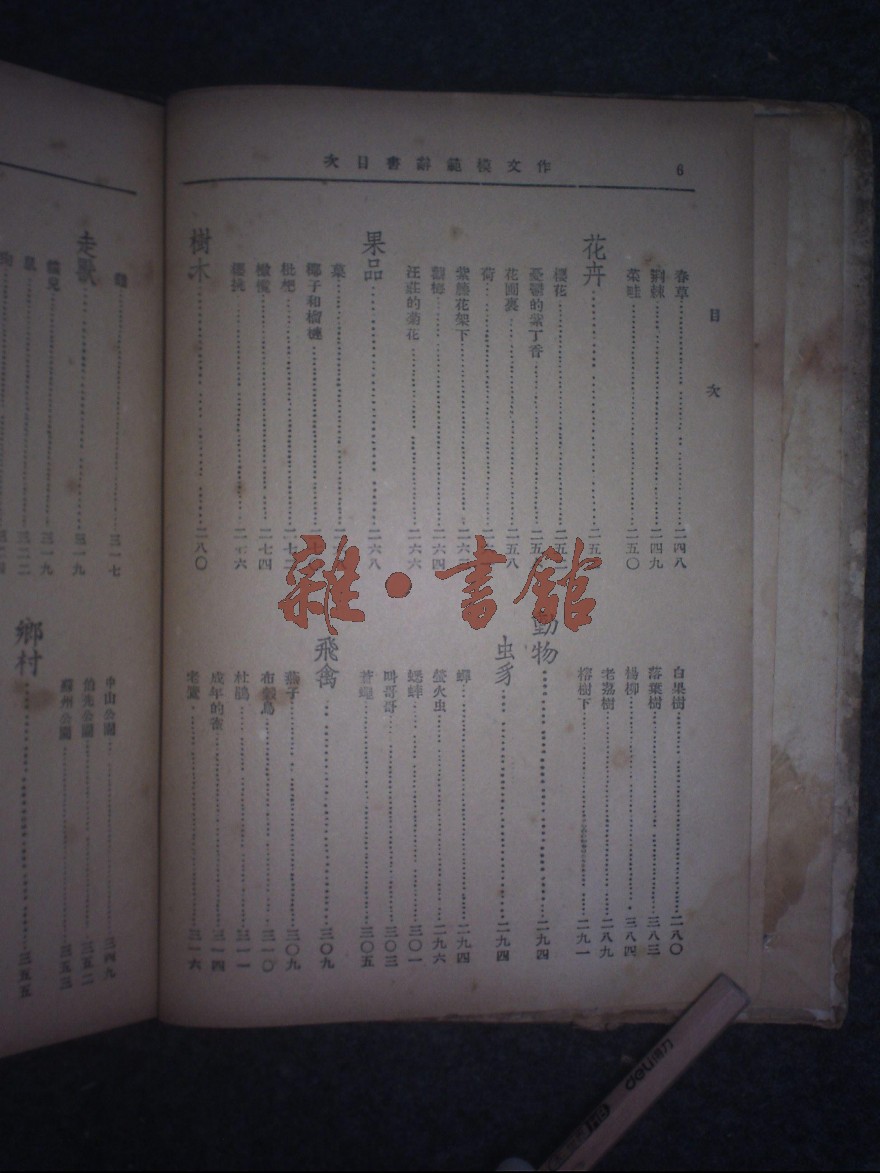 作文模範辭書目次
6
目次
春草……二四八
荆棘……二四九
菜畦……二五〇
花卉……二五
櫻花……二五二
憂鬱的紫丁香……二五
花園裏……二五八
荷……二六
紫藤花架下……二六
觀梅……二六四
汪莊的菊花……二六六
果品……二六八
菓……二六
椰子和榴槤
枇杷……二七二
橄欖……二七四
櫻桃……二七六
樹木……二八〇
白果樹……二八〇
落葉樹……三八三
楊柳……三八四
老嘉樹……二八九
榕樹下……二九一
動物……二九四
虫豸……二九四
蟬……二九四
螢火虫……二九六
蟋蟀……三〇一
叫哥哥……三〇三
蒼蠅……三〇五
飛禽……三〇九
燕子……三〇九
布穀鳥……三一〇
杜鵑……三一一
成年的雀……三一四
老鷺……三一六
……三一七
走獸……三一九
……三一九
鼠……三二二
狗
中山公園……三四九
公園……三五二
蘇州公園……三五三
鄉村……三五五
雜·書館
deli得力